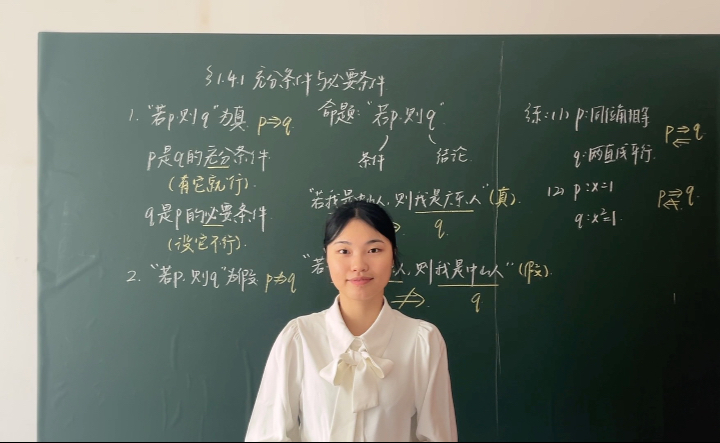 §1.4.1 充分条件与必要条件
1. "若p.则q"为真 p⇒q
p是q的充分条件.
(有它就行).
q是p的必要条件
(没它不行).
2. "若p.则q"为假 p⇏q
命题: "若p.则q"
条件 结论
"若我是中山人, 则我是广东人" (真).
q.
"若 人, 则我是中山人" (假).
⇏ q
练: (1) p:同位角相等
q:两直线平行.
p⇒q
⇐
(2) p:x=1
q:x²=1.
p⇒q